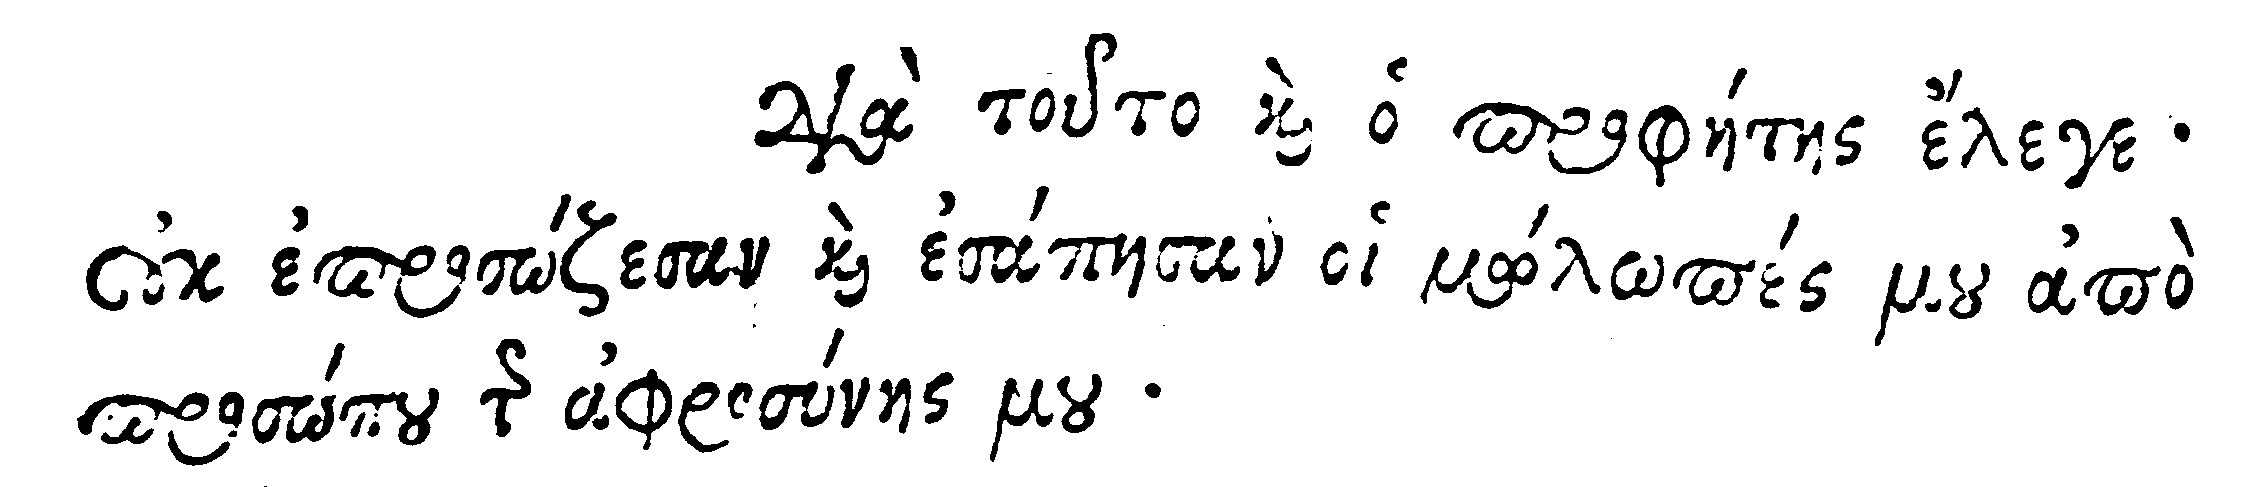 Διὰ τοῦτο καὶ ὁ προφήτης ἔλεγε·
Οὐκ ἐπροσώζεσαν καὶ ἐσάπησαν οἱ μώλωπές μου ἀπὸ
προσώπου τῆς ἀφροσύνης μου·